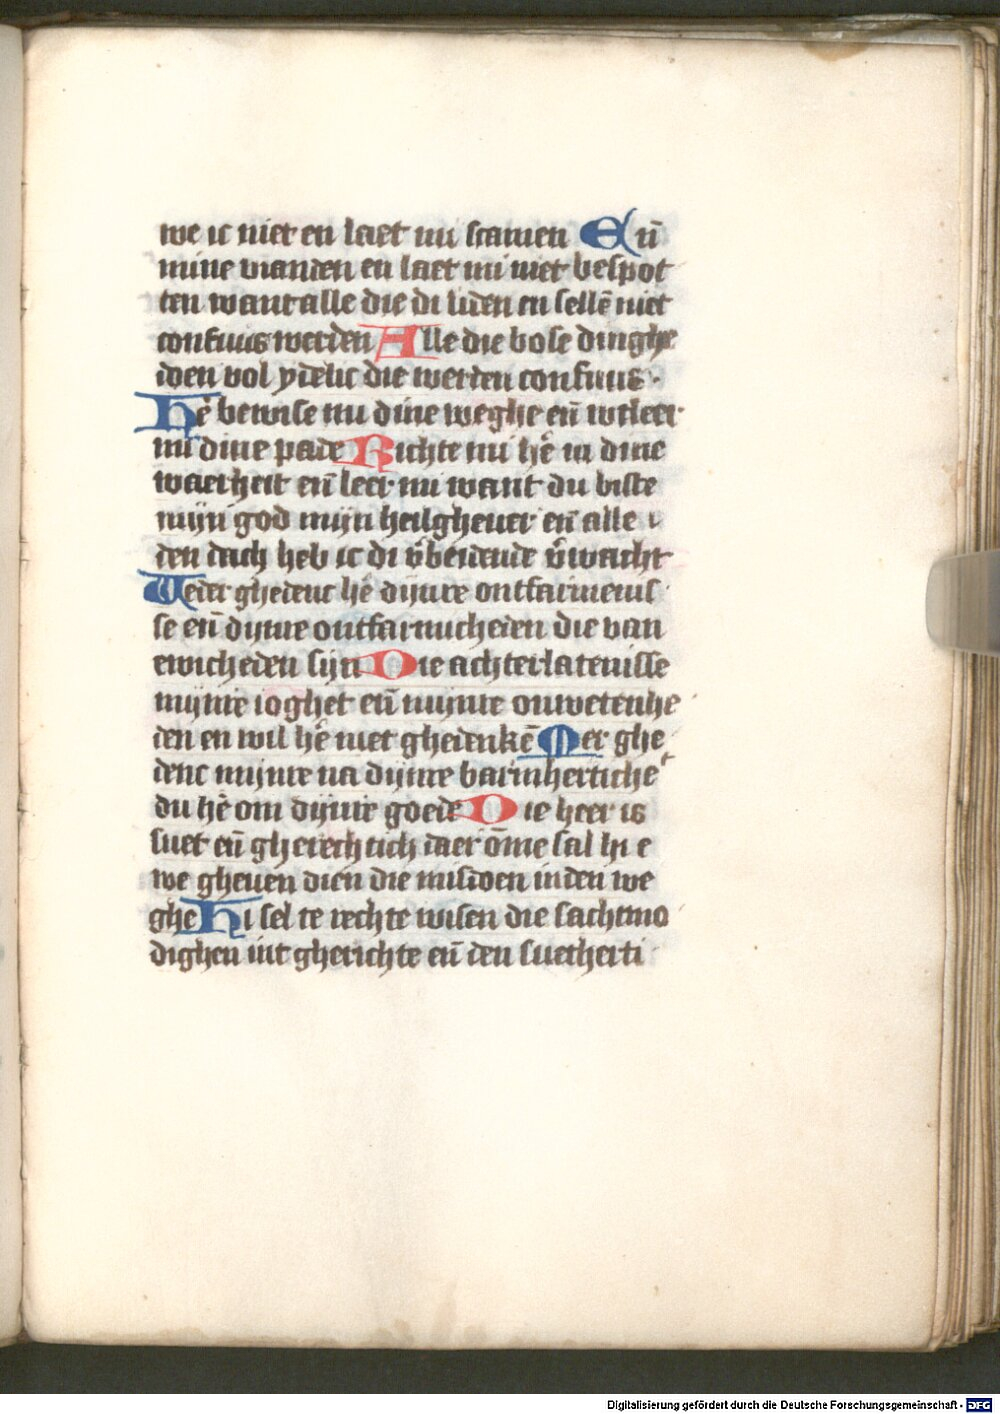 we ic niet en laet mi scamen Eñ
mine vianden en laet mi niet bespot
ten want alle die di liden en sellē niet
confuus werden Alle die bose dinghe
doen vol ydelic die werden confuus·
Hē bewise mi dine weghe eñ wtleer
mi dine pade Richte mi hē in dine
waerheit eñ leer mi want du biste
mijn god mijn heilgheuer eñ alle
den dach heb ic di v̄beidende v̄wacht
Weder ghedenc hē dijnre ontfarmenis
se eñ dijnre ontfarmicheden die van
ewicheden sijn Die achterlatenisse
mijnre ioghet eñ mijnre onwetenhe
den en wil hē niet ghedenkē Mer ghe
denc mijnre na dijnre barmherticheᵗ
du hē om dijnre goede Die heer is
suet eñ gherechtich daer ōme sal hi e
we gheuen dien die misdoen inden we
ghe Hi sel te rechte wisen die sachtmo
dighen int gherichte eñ den suetherti
Digitalisierung gefördert durch die Deutsche Forschungsgemeinschaft - DFG